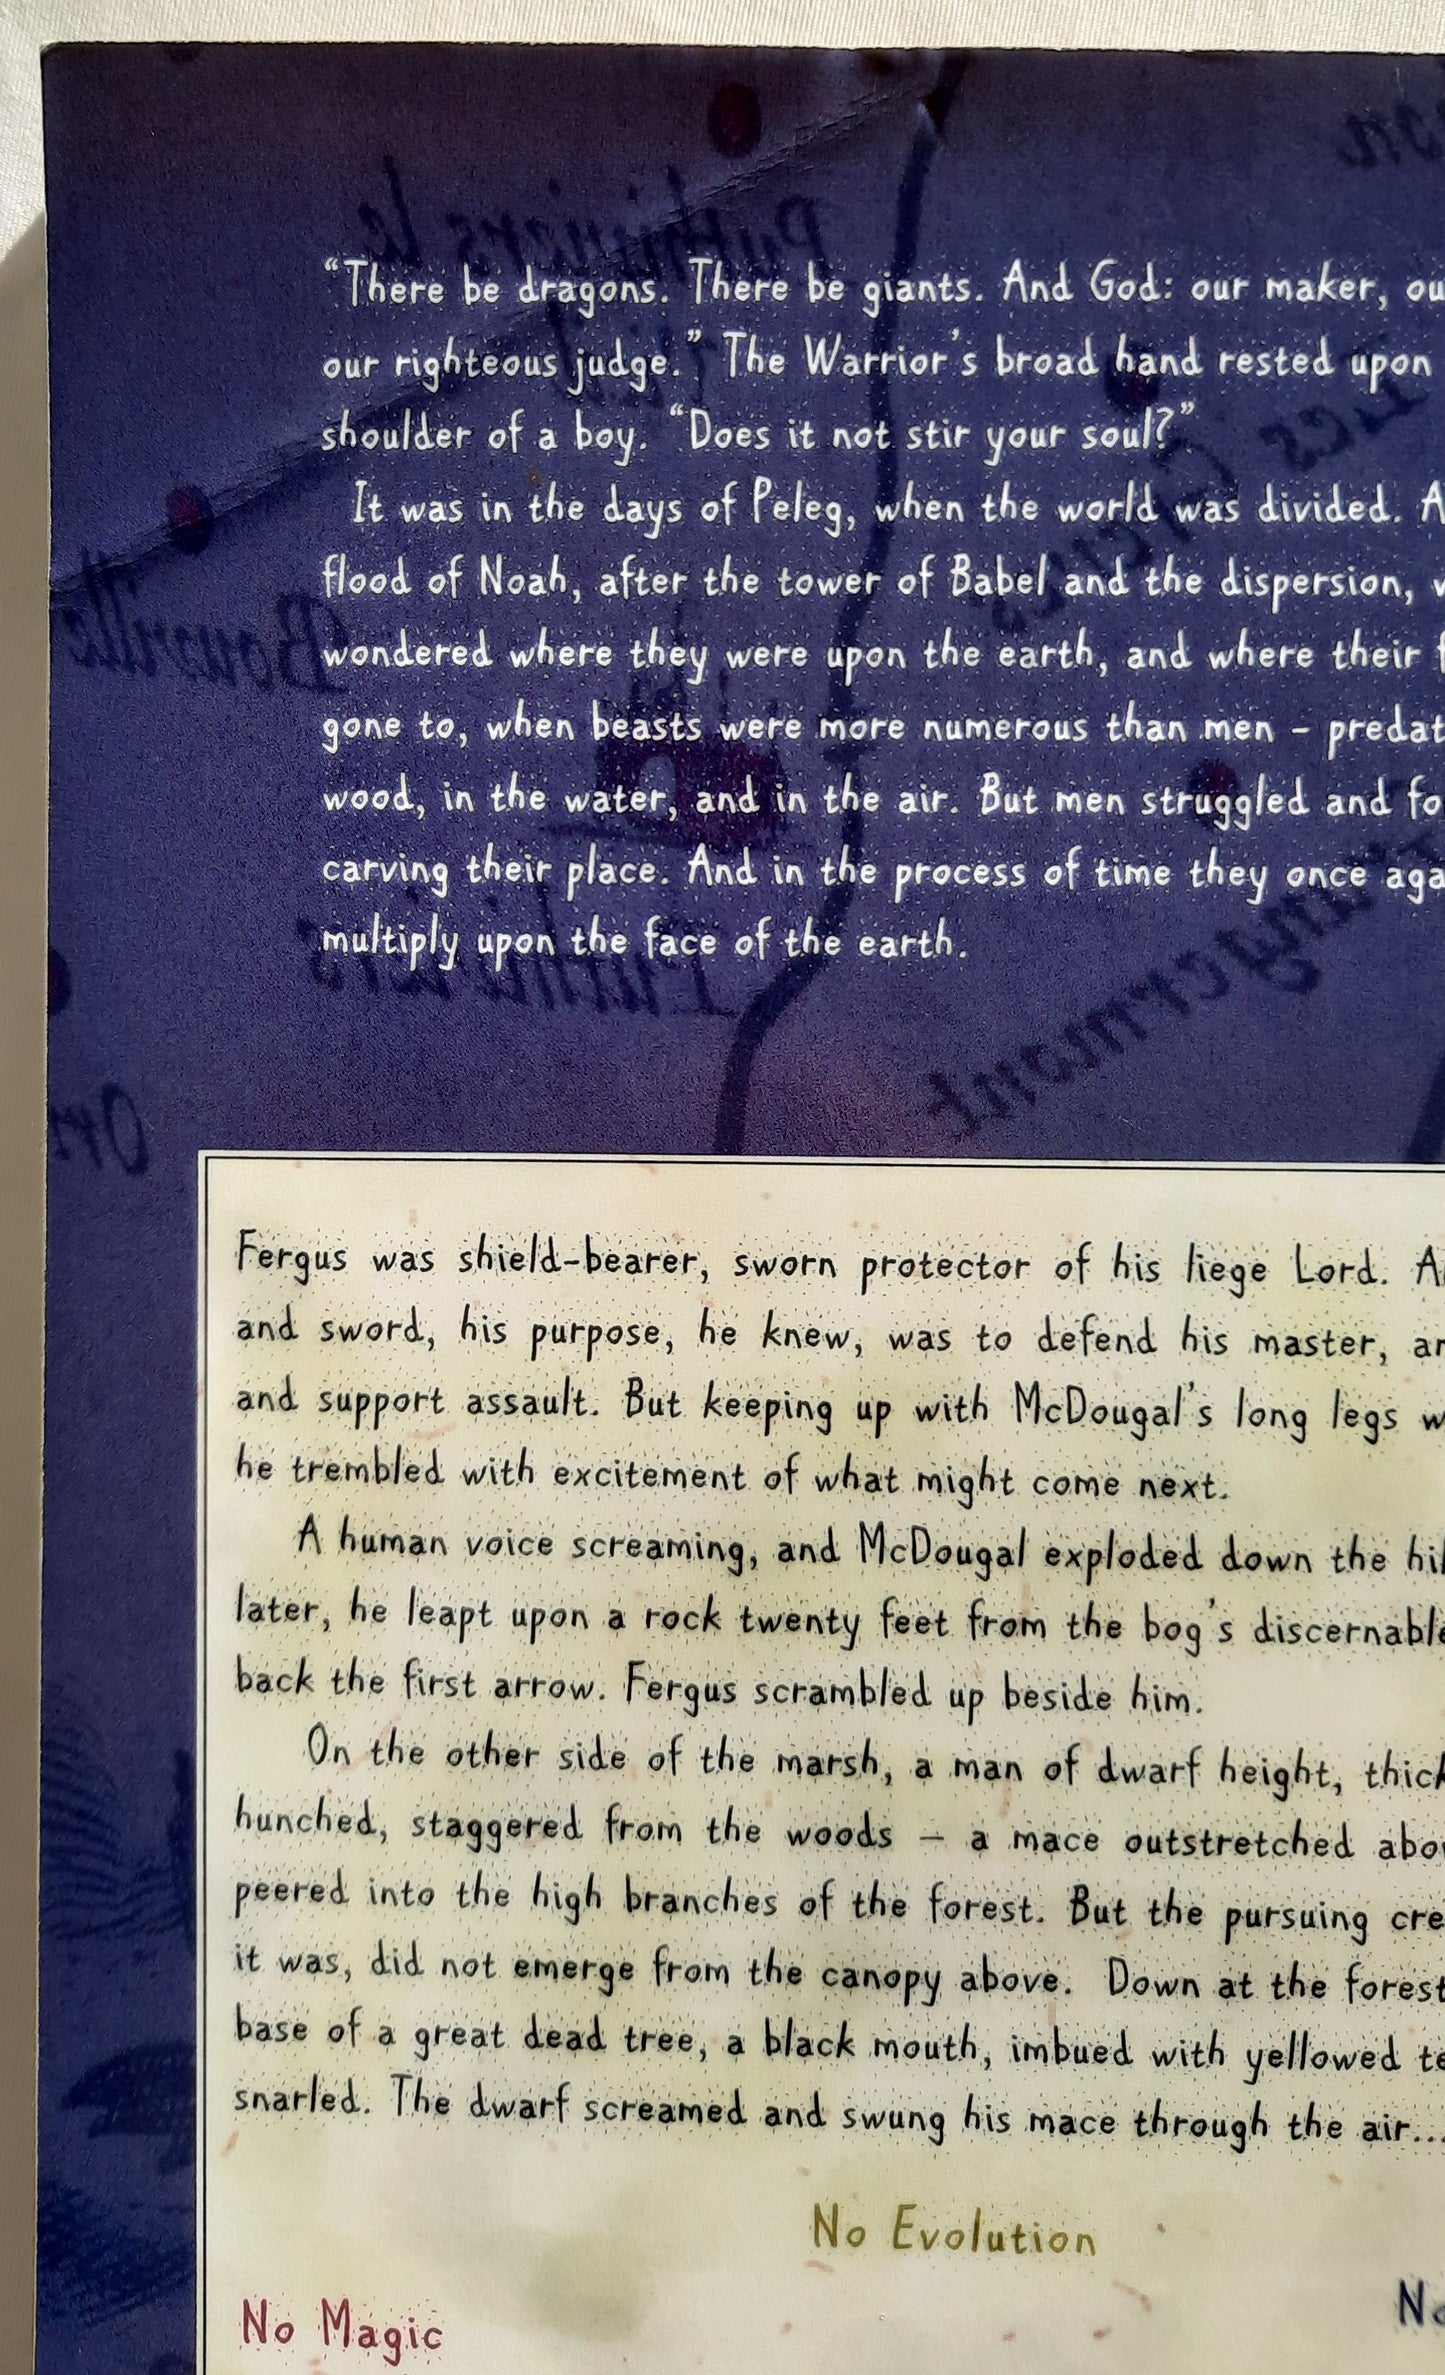 “There be dragons. There be giants. And God: our maker,
our righteous judge.” The Warrior’s broad hand rested upon
shoulder of a boy. “Does it not stir your soul?”
It was in the days of Peleg, when the world was divided.
flood of Noah, after the tower of Babel and the dispersion,
wondered where they were upon the earth, and where their
gone to, when beasts were more numerous than men – 
wood, in the water, and in the air. But men struggled and
carving their place. And in the process of time they once
multiply upon the face of the earth.
Fergus was shield-bearer, sworn protector of his liege Lord.
and sword, his purpose, he knew, was to defend his master,
and support assault. But keeping up with McDougal’s long legs
he trembled with excitement of what might come next.
A human voice screaming, and McDougal exploded down the
later, he leapt upon a rock twenty feet from the bog’s
back the first arrow. Fergus scrambled up beside him.
On the other side of the marsh, a man of dwarf height,
hunched, staggered from the woods – a mace outstretched
peered into the high branches of the forest. But the pursuing
it was, did not emerge from the canopy above. Down at the forest
base of a great dead tree, a black mouth, imbued with yellowed
snarled. The dwarf screamed and swung his mace through the air...
No Evolution
No Magic